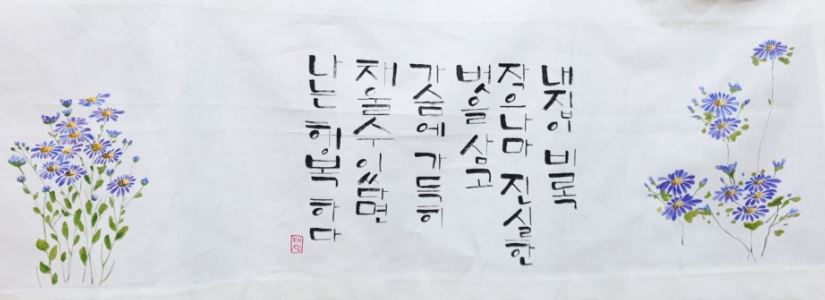 내집이 비록
작으나마 진실한
벗을 삼고
가슴에 가득히
채울수 있다면
나는 행복 하다